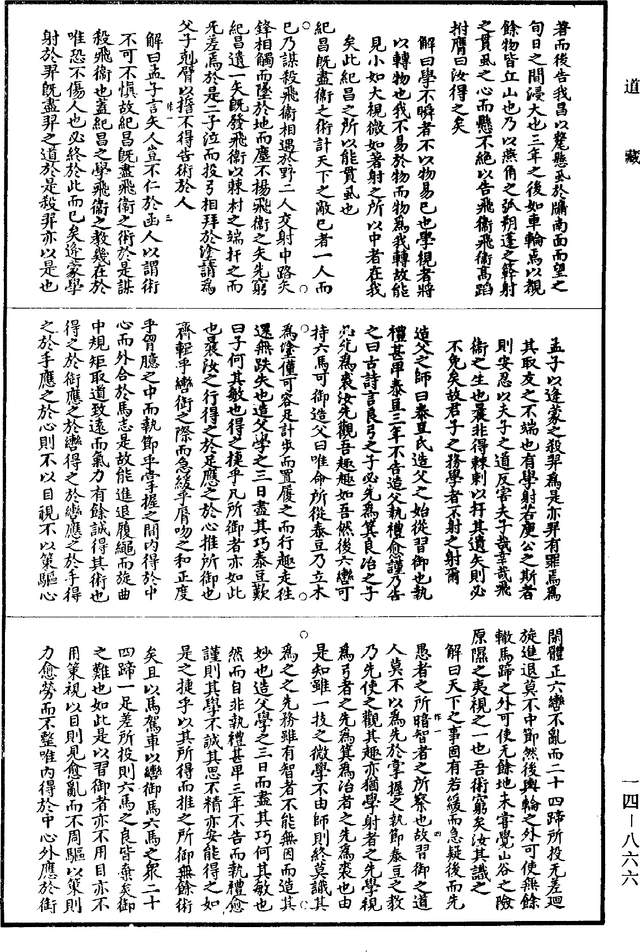 道藏
箸而後告我昌以氂懸虱於牖南面而望之
旬日之間浸大也三年之後如車輪焉以覩
餘物皆丘山也乃以燕角之弧朔蓬之簳射
之貫虱之心而懸不絕以告飛衞飛衞高蹈
拊膺曰汝得之矣
解曰學不瞬者不以物易己也學視者將
以轉物也我不易於物而物為我轉故能
見小如大視微如著射之所以中者在我
矣此紀昌之所以能貫虱也
紀昌既盡衞之術計天下之敵己者一人而
已乃謀殺飛衞相遇於野二人交射中路矢
鋒相觸而墜於地而塵不揚飛衞之矢先窮
紀昌遺一矢既發飛衞以棘刺之端扞之而
无差焉於是二子泣而投弓相拜於塗請為
父子剋臂以誓不得告術於人
解曰孟子言矢人豈不仁於函人以謂術
不可不慎故紀昌既盡飛衞之術於是謀
殺飛衞也蓋紀昌之學飛衞之教幾在於
唯恐不傷人也必終於此而已矣逄蒙學
射於羿既盡羿之道於是殺羿亦以是也
孟子以逄蒙之殺羿為是亦羿有罪焉為
其取友之不端也有學射若庾公之斯者
則安忍以夫子之道反害夫子哉幸哉飛
衞之生也曩非得棘刺以扞其遺矢則必
不免矣故君子之務學者不射之射爾
造父之師曰泰豆氏造父之始從習御也執
禮甚卑泰豆三年不告造父執禮愈謹乃告
之曰古詩言良弓之子必先為箕良冶之子
必先為裘汝先觀吾趣趣如吾然後六轡可
持六馬可御造父曰唯命所從泰豆乃立木
為塗僅可容足計步而置履之而行趣走往
還無跌失也造父學之三日盡其巧泰豆歎
曰子何其敏也得之捷乎凡所御者亦如此
也曩汝之行得之於足應之於心推所御也
齊輯乎轡銜之際而急緩乎脣吻之和正度
乎胷臆之中而執節乎掌握之間內得於中
心而外合於馬志是故能進退履繩而旋曲
中規矩取道致遠而氣力有餘誠得其術也
得之於銜應之於轡得之於轡應之於手得
之於手應之於心則不以目視不以策驅心
閑體正六轡不亂而二十四蹄所投无差迴
旋進退莫不中節然後輿輪之外可使無餘
轍馬蹄之外可使无餘地未嘗覺山谷之險
原隰之夷視之一也吾術窮矣汝其識之
解曰天下之事固有若緩而急疑後而先
愚者之所暗智者之所察也故習御之道
人莫不以為先於掌握之執節泰豆之教
乃先使之觀其趣亦猶學射者之先學視
為弓者之先為箕為冶者之先為裘也由
是知雖一技之微學不由師則終莫識其
為之之先務雖有智者不能無因而造其
妙也造父學之三日而盡其巧何其敏也
然而自非執禮甚卑三年不告而執禮愈
謹則其學不誠其思不精亦安能得之如
是之捷乎以其所得而推之所御無餘術
矣且以馬駕車以轡御馬六馬之衆二十
四蹄一足差所投則六馬之良皆棄矣御
之難也如此是以習御者亦不用目亦不
用策視以目則見愈亂而不周驅以策則
力愈勞而不整唯內得於中心外應於銜
一四—八六六